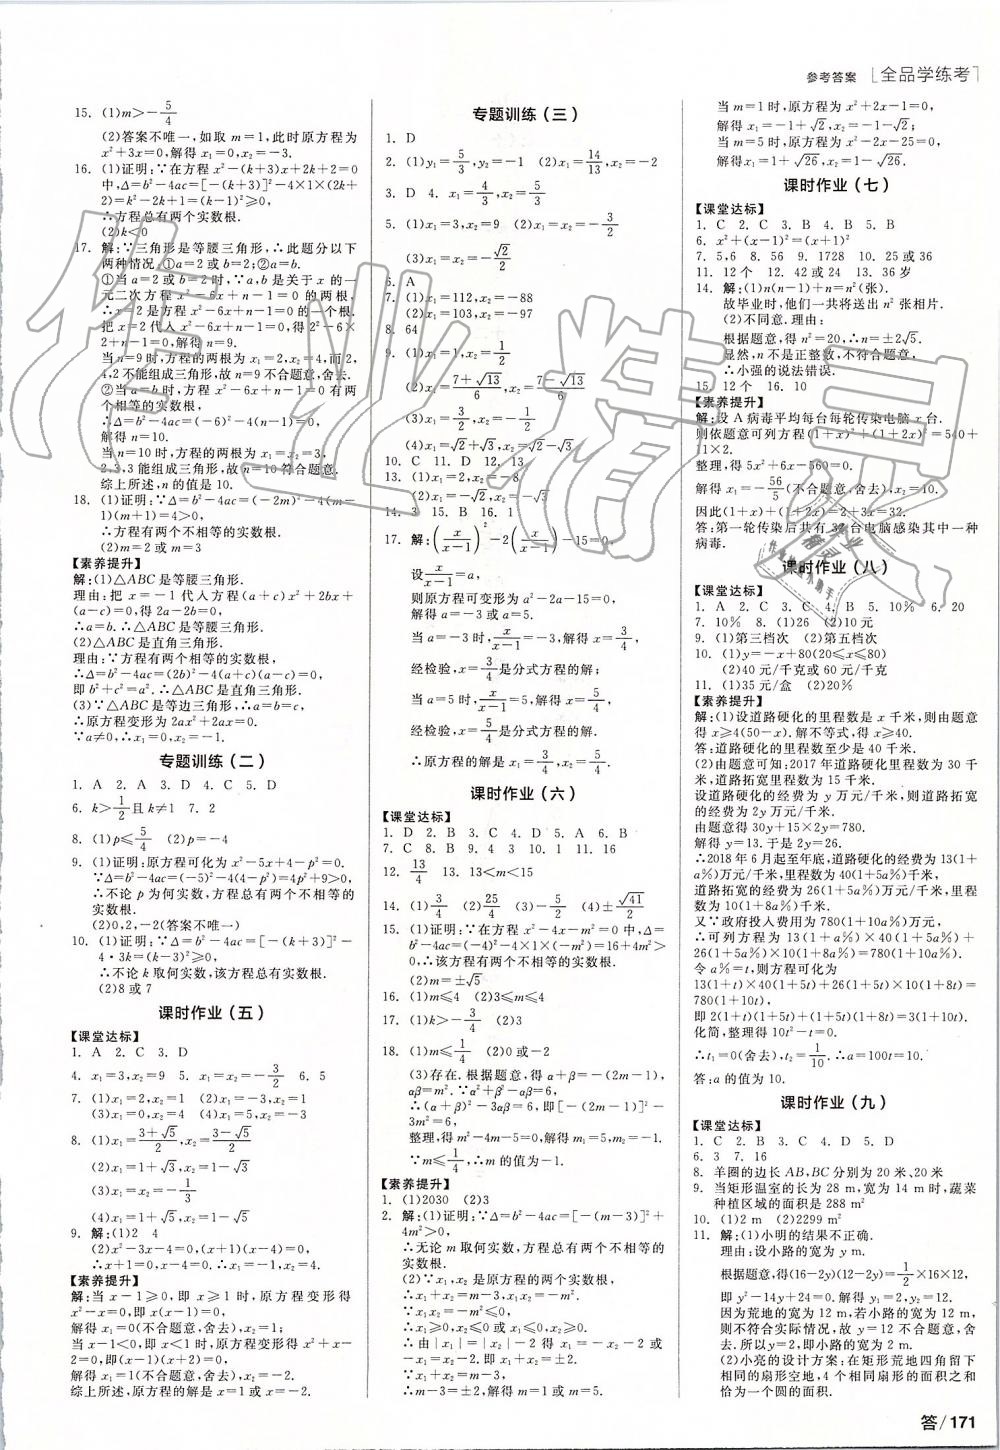 参考答案 [全品学练考]
15. (1)m>-5/4
(2)答案不唯一,如取 m=1,此时原方程为
x²+3x=0,解得 x₁=0,x₂=-3.
16. (1)证明:∵在方程 x²-(k+3)x+2k+2=0
中,Δ=b²-4ac=[-(k+3)]²-4×1×(2k+
2)=k²-2k+1=(k-1)²≥0,
∴方程总有两个实数根.
(2)k<0
17. 解:∵三角形是等腰三角形,∴此题分以下
两种情况,①a=2或b=2;②a=b.
①当 a=2 或 b=2 时,∵a,b 是关于 x 的一
元二次方程 x²-6x+n-1=0 的两根,
∴x=2 是方程 x²-6x+n-1=0 的一个根.
把 x=2 代入 x²-6x+n-1=0,得 2²-6×
2+n-1=0,解得 n=9.
当 n=9 时,方程的两根为 x₁=2,x₂=4,而2,
4,2不能组成三角形,故 n=9 不合题意,舍去.
②当 a=b 时,方程 x²-6x+n-1=0 有两
个相等的实数根,
∴Δ=b²-4ac=(-6)²-4(n-1)=0,
解得 n=10.
当 n=10 时,方程的两根为 x₁=x₂=3,
2,3,3 能组成三角形,故 n=10 符合题意.
综上所述,n 的值是 10.
18. (1)证明:∵Δ=b²-4ac=(-2m)²-4(m-
1)(m+1)=4>0,
∴方程有两个不相等的实数根.
(2)m=2 或 m=3
【素养提升】
解:(1)△ABC 是等腰三角形.
理由:把 x=-1 代入方程(a+c)x²+2bx+
(a-c)=0,得 2a-2b=0,
∴a=b.∴△ABC 是等腰三角形.
(2)△ABC 是直角三角形.
理由:∵方程有两个相等的实数根,
∴Δ=b²-4ac=(2b)²-4(a+c)(a-c)=0,
即 b²+c²=a².∴△ABC 是直角三角形.
(3)∵△ABC 是等边三角形,∴a=b=c,
∴原方程变形为 2ax²+2ax=0.
∵a≠0,∴x₁=0,x₂=-1.
专题训练(二)
1. A 2. A 3. D 4. C 5. D
6. k>1/2且 k≠1 7. 2
8. (1)p≤5/4 (2)p=-4
9. (1)证明:原方程可化为 x²-5x+4-p²=0.
∵Δ=b²-4ac=(-5)²-4(4-p²)=4p²+9>0,
∴不论 p 为何实数,方程总有两个不相等的
实数根.
(2)0,2,-2(答案不唯一)
10. (1)证明:∵Δ=b²-4ac=[-(k+3)]²-
4·3k=(k-3)²≥0,
∴不论 k 取何实数,该方程总有实数根.
(2)8 或 7
课时作业(五)
【课堂达标】
1. A 2. C 3. D
4. x₁=3,x₂=9 5. x₁=x₂=-3/2 6. 5
7. (1)x₁=2,x₂=1 (2)x₁=-3,x₂=1
(3)x₁=0,x₂=4 (4)x₁=5,x₂=-3
8. (1)x₁=(3+√5)/2,x₂=(3-√5)/2
(2)x₁=1+√3,x₂=1-√3
(3)x₁=x₂=-1/3
(4)x₁=1+√5,x₂=1-√5
9. 解:(1)2 4
(2)x²-3x-4=0,(x+1)(x-4)=0,
∴x+1=0,x-4=0.∴x₁=-1,x₂=4.
【素养提升】
解:当 x-1≥0,即 x≥1 时,原方程变形得
x²-x=0,即 x(x-1)=0,
解得 x₁=0(不合题意,舍去),x₂=1;
当 x-1<0,即 x<1 时,原方程变形得 x²+x-
2=0,即(x-1)(x+2)=0,
解得 x₁=1(不合题意,舍去),x₂=-2.
综上所述,原方程的解是 x=1 或 x=-2.
专题训练(三)
1. D
2. (1)y₁=5/3,y₂=-1 (2)x₁=14/13,x₂=-2
3. D 4. x₁=4/3,x₂=5/3
5. (1)x₁=3,x₂=9 (2)x₁=0,x₂=-3/2
(3)x₁=x₂=-√2/2
6. A
7. (1)x₁=112,x₂=-88
(2)x₁=103,x₂=-97
8. 64
9. (1)x₁=1,x₂=5/3
(2)x₁=(7+√13)/6,x₂=(7-√13)/6
(3)x₁=-4/3,x₂=6
(4)x₁=√2+√3,x₂=√2-√3
10. C 11. D 12. 13
13. (1)x₁=2,x₂=-8
(2)x₁=-√2,x₂=-√3
14. 3 15. B 16. 1
17. 解:(x/(x-1))²-2(x/(x-1))-15=0,
设x/(x-1)=a,
则原方程可变形为 a²-2a-15=0,
解得 a=-3 或 a=5.
当 a=-3 时,x/(x-1)=-3,解得 x=3/4,
经检验,x=3/4是分式方程的解;
当 a=5 时,x/(x-1)=5,解得 x=5/4,
经检验,x=5/4是分式方程的解.
∴原方程的解为 x₁=3/4,x₂=5/4.
课时作业(六)
【课堂达标】
1. D 2. B 3. C 4. D 5. A 6. B
7. C 8. B 9. 4 3 10. 1 11. 16
12. 13/4 13. 13<m<15
14. (1)3/4 (2)25/4 (3)-5/2 (4)±√41/2
15. (1)证明:∵在方程 x²-4x-m²=0 中,Δ=
b²-4ac=(-4)²-4×1×(-m²)=16+4m²>
0,∴该方程有两个不相等的实数根.
(2)m=±√5
16. (1)m≤4 (2)3≤m≤4
17. (1)k>-3/4 (2)3
18. (1)m≤1/4 (2)0 或-2
(3)存在. 根据题意,得 α+β=-(2m-1),
αβ=m². ∵α²+β²-αβ=6,
∴(α+β)²-3αβ=6,即[-(2m-1)]²-
3m²=6,
整理,得 m²-4m-5=0,解得 m₁=5,m₂=-1.
∵m≤1/4,∴m 的值为-1.
【素养提升】
1. (1)2030 (2)3
2. 解:(1)证明:∵Δ=b²-4ac=[-(m-3)]²-
∴无论 m 取何实数,该方程总有两个不相等
的实数根.
(2)∵x₁,x₂ 是原方程的两个实数根,
∴x₁x₂=-m²≤0,
∴x₁≥0,x₂≤0 或 x₁≤0,x₂≥0.
∴m-3=±2,解得 m=1 或 m=5.
当 m=1 时,原方程为 x²+2x-1=0,
解得 x₁=-1+√2,x₂=-1-√2;
当 m=5 时,原方程为 x²-2x-25=0,
解得 x₁=1+√26,x₂=1-√26.
课时作业(七)
【课堂达标】
1. C 2. C 3. B 4. B 5. B
6. x²+(x-1)²=(x+1)²
7. 5,6 8. 56 9. 1728 10. 25 或 36
11. 12 个 12. 42 或 24 13. 36 岁
14. 解:(1)n(n-1)+n=n²(张).
故毕业时,他们一共将送出 n² 张相片.
(2)不同意. 理由:
根据题意,得 n²=20,解得 n=±2√5.
显然,n 不是正整数,不符合题意.
∴小强的说法错误.
15. 12 个 16. 10
【素养提升】
解:设 A 病毒平均每台每轮传染电脑 x 台.
则依题意可列方程(1+x)²+(1+2x)²=540+
1×2.
整理,得 5x²+6x-560=0.
解得 x₁=-56/5(不合题意,舍去),x₂=10.
因此(1+x)+(1+2x)=2+3x=32.
答:第一轮传染后共有 32 台电脑感染其中一种
病毒.
课时作业(八)
【课堂达标】
1. A 2. C 3. C 4. B 5. 10% 6. 20
7. 10% 8. (1)26 (2)10 元
9. (1)第三档次 (2)第五档次
10. (1)y=-x+80(20≤x≤80)
(2)40 元/千克或 60 元/千克
11. (1)35 元/盒 (2)20%
【素养提升】
解:(1)设道路硬化的里程数是 x 千米,则由题意
得 x≥4(50-x). 解不等式,得 x≥40.
答:道路硬化的里程数至少是 40 千米.
(2)由题意可知:2017 年道路硬化里程数为 30 千
米,道路拓宽里程数为 15 千米.
设道路硬化的经费为 y 万元/千米,道路拓宽
的经费为 2y 万元/千米.
由题意得 30y+15×2y=780.
解得 y=13. 于是 2y=26.
∴2018 年 6 月起至年底,道路硬化的经费为 13(1+
a%)万元/千米,
道路拓宽的经费为 26(1+5a%)万元/千米.
又∵政府投入费用为 780(1+10a%)万元,
∴可列方程为 13(1+a%)×40(1+5a%)+
26(1+5a%)×15(1+8a%)=780(1+10a%).
令 a%=t,则方程可化为
13(1+t)×40(1+5t)+26(1+5t)×15(1+8t)=
780(1+10t),
即 2(1+t)(1+5t)+(1+5t)(1+8t)=3(1+10t).
化简,整理得 10t²-t=0,
∴t₁=0(舍去),t₂=1/10. ∴a=100t=10.
答:a 的值为 10.
课时作业(九)
【课堂达标】
1. C 2. B 3. C 4. A 5. D
6. 3 7. 16
8. 羊圈的边长 AB,BC 分别为 20 米、20 米
9. 当矩形温室的长为 28 m,宽为 14 m 时,蔬菜
种植区域的面积是 288 m²
10. (1)2 m (2)2299 m²
11. 解:(1)小明的结果不正确.
理由:设小路的宽为 y m.
根据题意,得(16-2y)(12-2y)=1/2×16×12,
即 y²-14y+24=0. 解得 y₁=2,y₂=12.
因为荒地的宽为 12 m,若小路的宽为 12 m,
则不符合实际情况,故 y=12 不符合题意,
舍去. 所以,小明的结果不正确.
(2)小亮的设计方案:在矩形荒地四角留下
相同的扇形空地,4 个相同扇形的面积之和
恰为一个圆的面积.
答/171